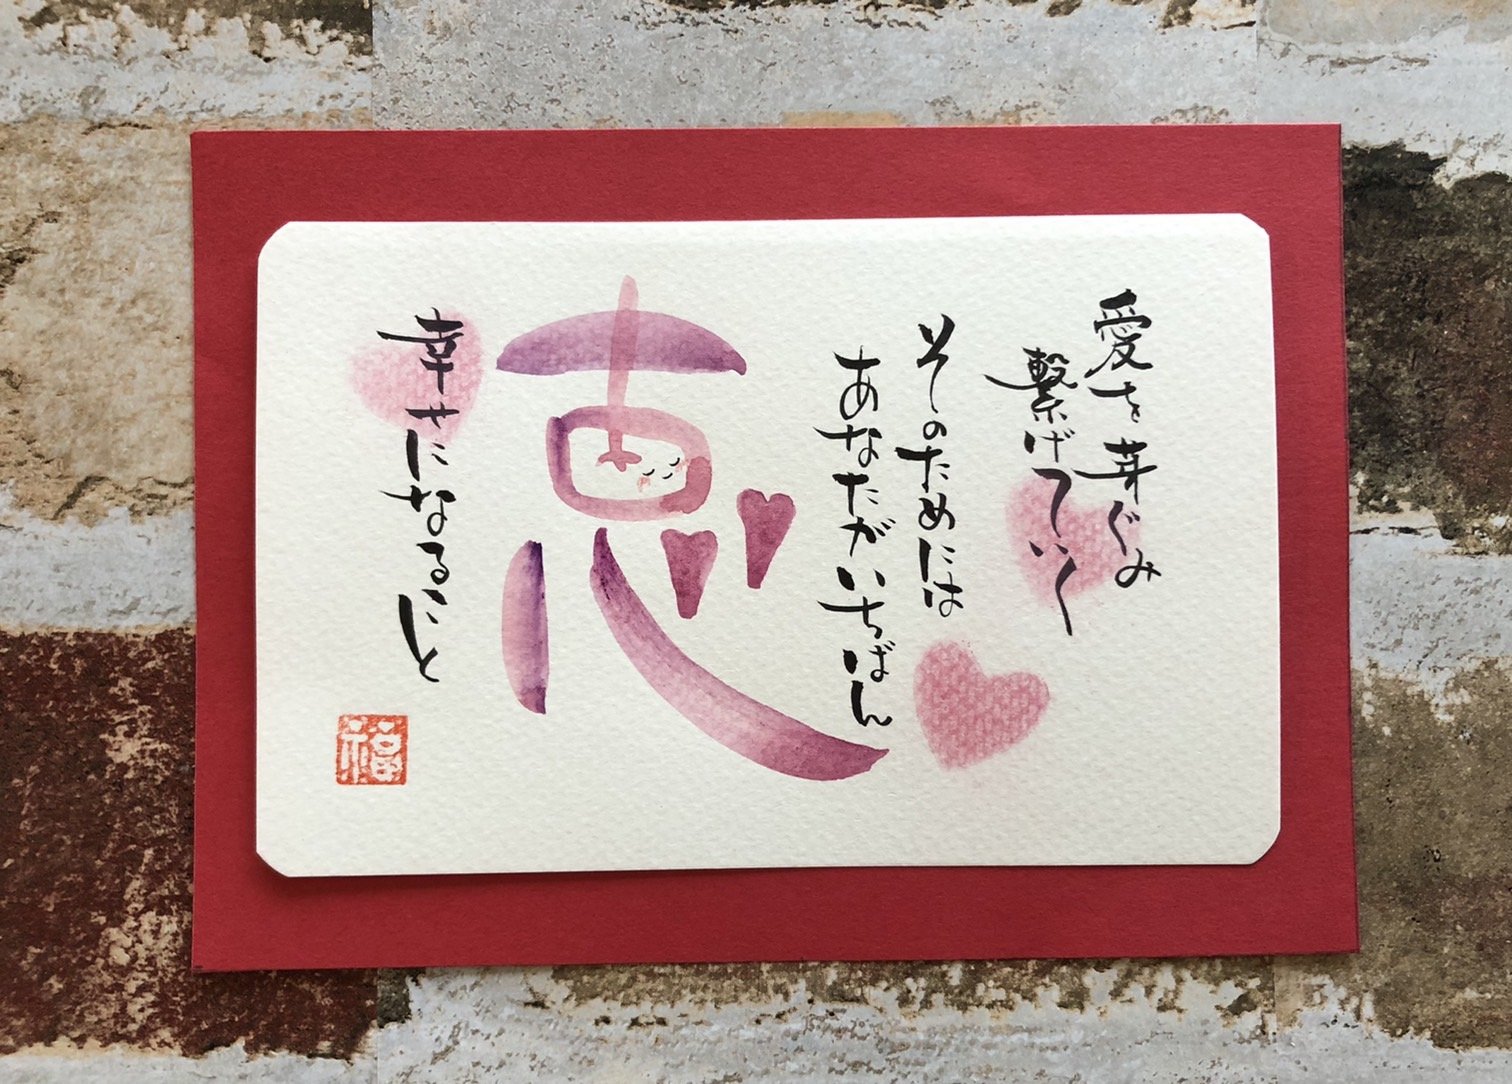 愛を芽ぐみ
繋げていく
そのためには
あなたがいちばん
恵
幸せになること
福